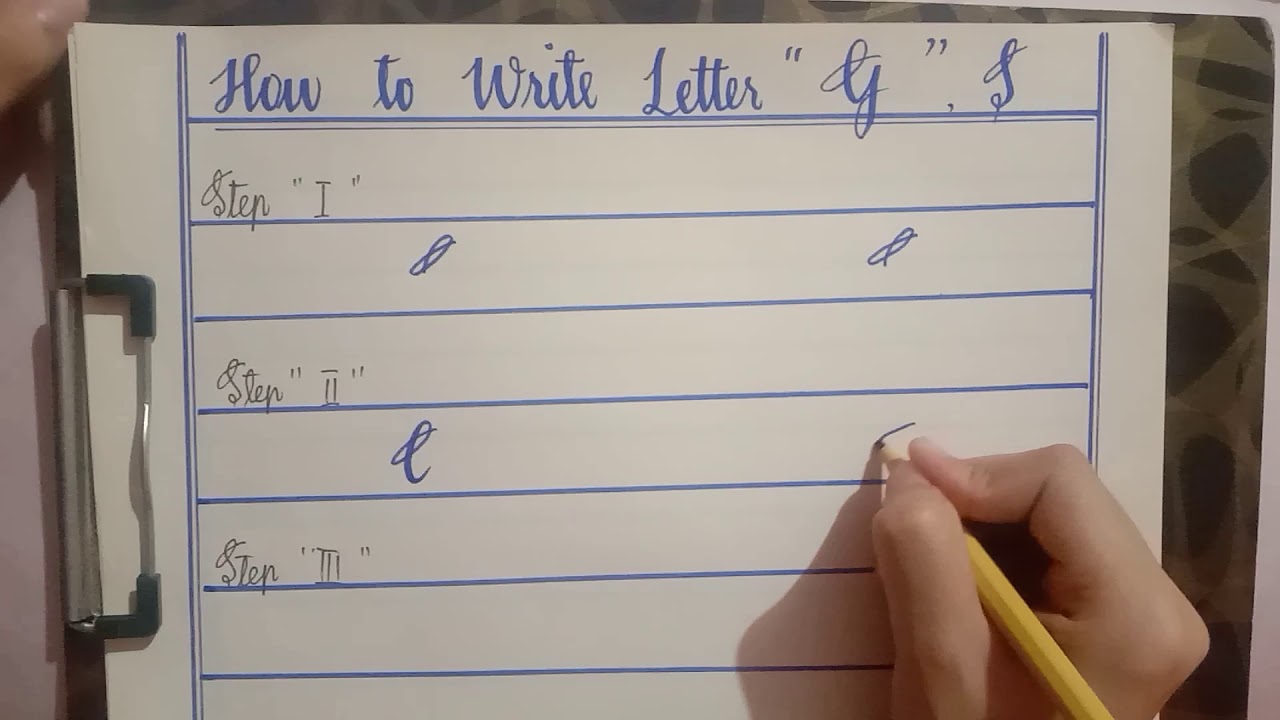 How to Write Letter " G ", S
Step " I "
Step " II "
Step " III "